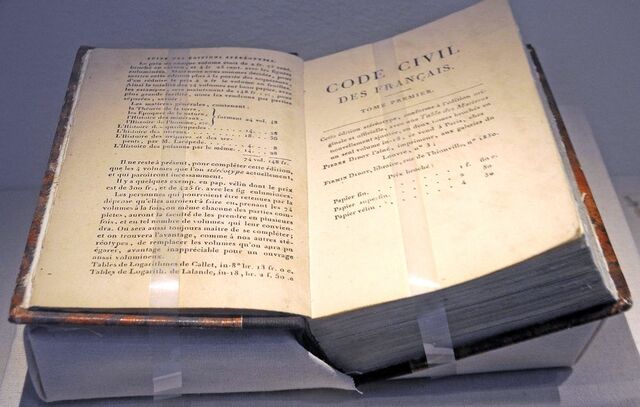 SUITE DES ÉDITIONS STÉRÉOTYPES.
Le prix de chaque volume étant de 2 fr.
Les matières générales, contenant:
la Théorie de la terre
les Époques de la nature
l'Histoire des minéraux, formant 24 vol. 48
l'Histoire de l'homme, etc.
L'Histoire des quadrupèdes 14. 28
L'Histoire des oiseaux 18.
L'Histoire des
par M. Lacépède.
L'Histoire des poissons par le même.
74 vol. 148 fr.
Il ne reste à présent, pour compléter cette édition,
que les 4 volumes que l'on stéréotype actuellement,
et qui paroîtront incessamment.
Il y a quelques exemp. en pap. vélin dont le prix
est de 300 fr., et de 425 fr. avec fig. enluminées.
Les personnes qui pourroient être retenues par la
dépense qu'elles auroient à faire en, prenant les 74
volumes à la fois, ou même chacune des parties com-
pletes, auront la faculté de les prendre en plusieurs
fois, et en tel nombre de volumes qui leur convien-
dra. On sera aussi toujours maître de se compléter;
et on trouvera l'avantage, comme à nos autres sté-
réotypes, de remplacer les volumes qu'on aura pu
égarer, avantage inappréciable pour un ouvrage
aussi volumineux.
Tables de Logarithmes de Callet, in-8° br. 15 fr. 0 c.
Tables de Logarith. de Lalande, in-18, br. 2 f. 50 c.
CODE CIVIL
DES FRANÇAIS.
TOME PREMIER.
Cette édition stéréotype, conforme à l'édition ori-
ginale et officielle, avec une Table des Matières
un seul volume in-18, et se vend à Paris, chez
PIERRE DIDOT l'aîné, imprimeur, aux galeries du
Louvre, n° 3;
FIRMIN DIDOT, libraire, rue de Thionville, n° 1850.
Prix broché:
Papier fin 1 fr. 50 c.
Papier superfin 2 50
Papier vélin 4 50